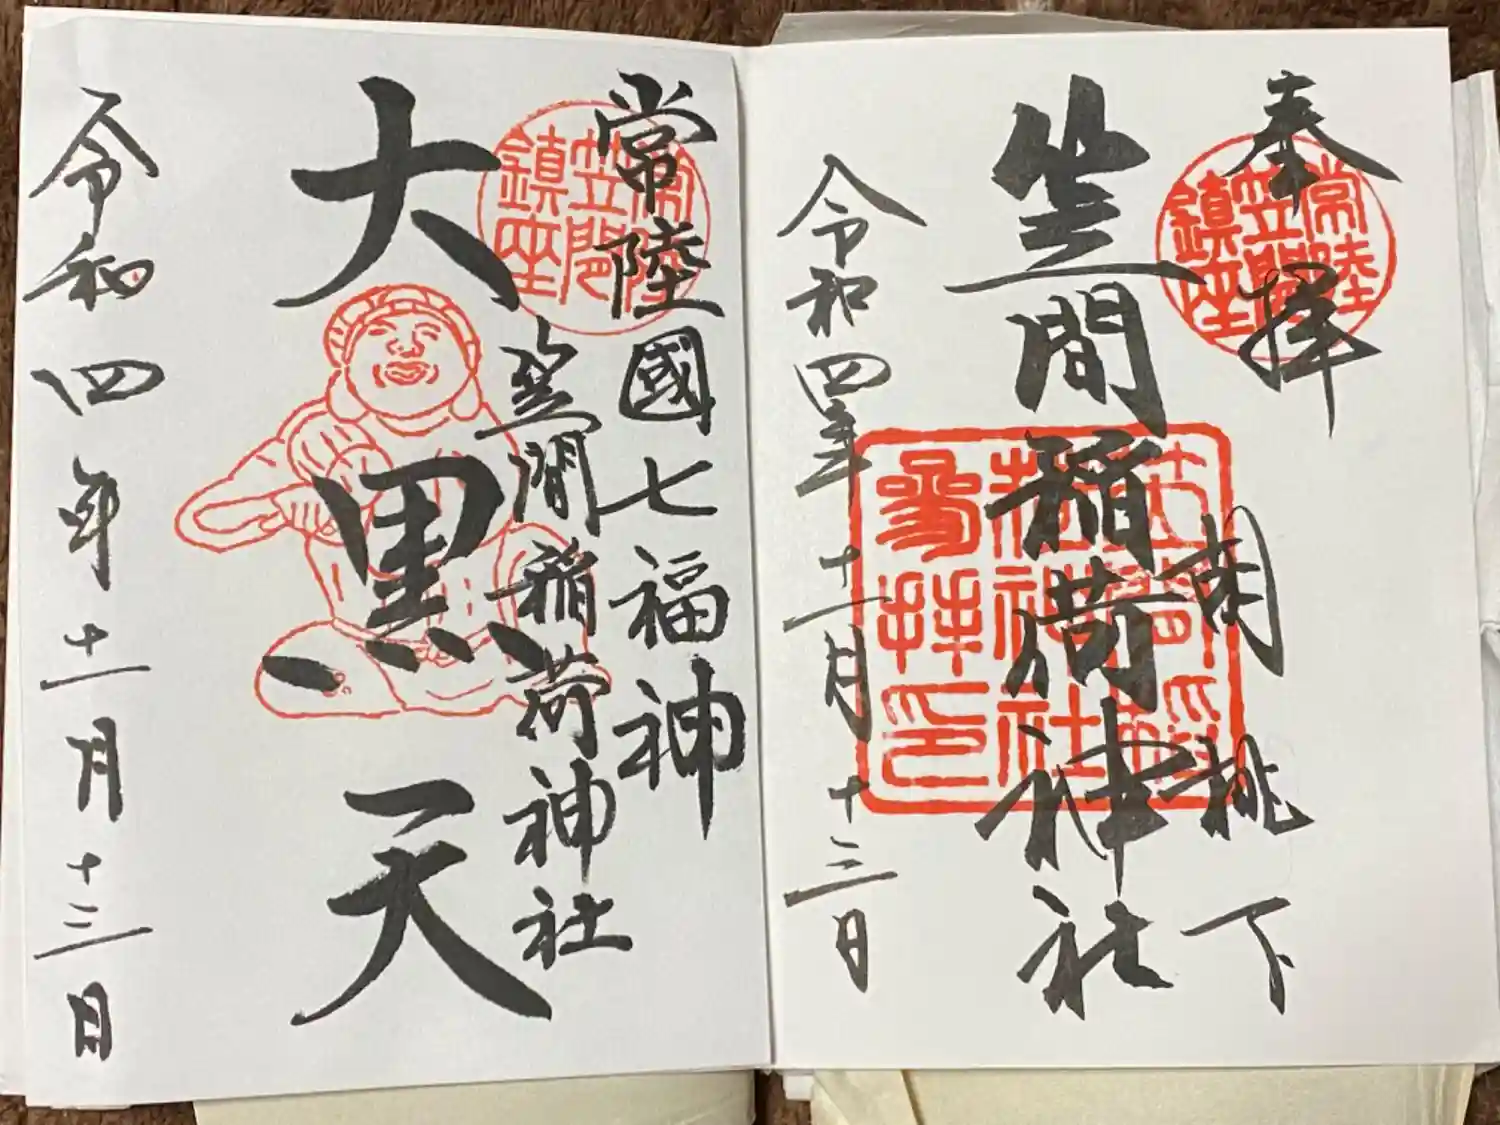 奉拝
常陸
笠間
鎮座
胡桃下
笠間稲荷神社
笠間稲
荷神社
参拝印
令和四年十一月十三日
常陸國七福神
常陸
笠間
鎮座
笠間稲荷神社
大黒天
令和四年十一月十三日